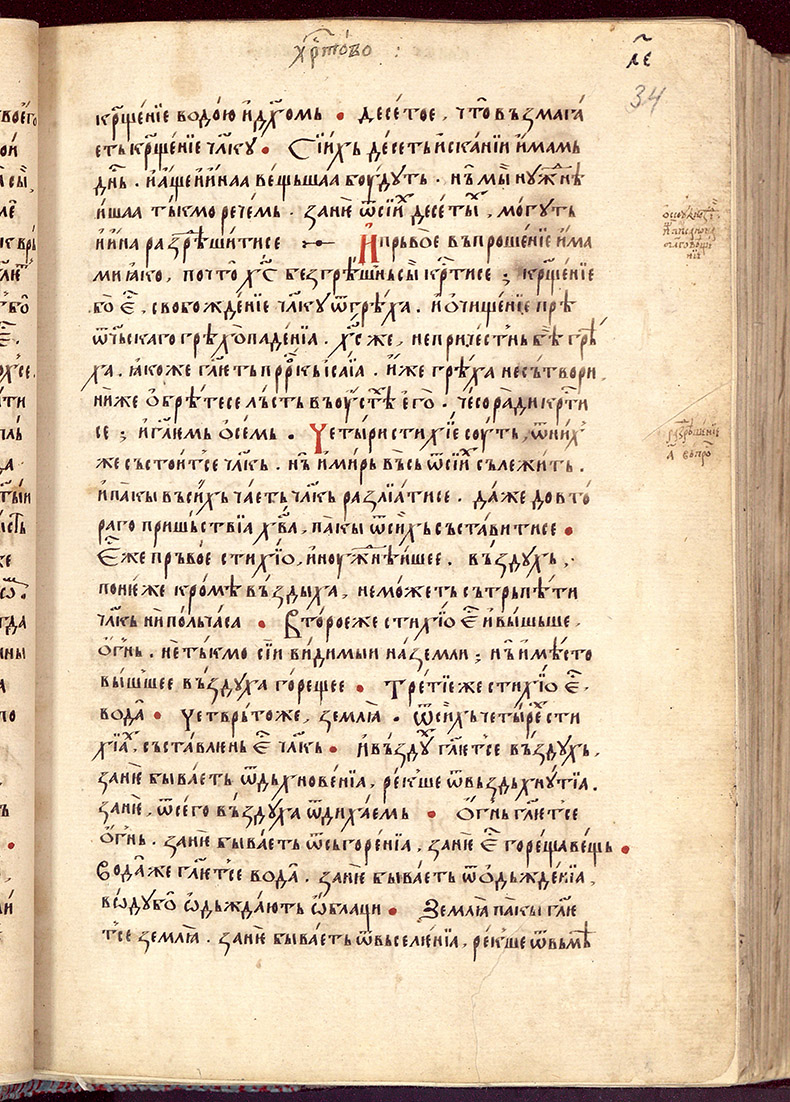 хр҃то́во :
л҃е
34
кр҃ще́нїе водо́ю и҆дх҃омь • десе́тое , что̀ въз мага́
еть кр҃ще́нїе чл҃ку • Сїи́хь де́сеть и҆скані́и и҆́мамь
дн҃ь . и҆ а҆́ще и҆ и҆́наа ве́щьшаа бо́удуть . нь҃ мы̀ ну́жнѣ
и҆шаа тъ́кмо рече́мь . зане́ѥ ѿ сїи́х десе́ты́х , мо́гуть
и҆ и҆́на разрѣ́шитисе И҆ пръво́е въпроше́нїе и҆́ма
ми ꙗ҆́ко , почто̀ х҃с безгрѣ́шнь сы̀ кр҃тисе ; кр҃ще́нїе
бо̀ е҃ , свобожде́нїе чл҃ку ѿ грѣ́ха . и҆ ѡ҆чище́нїе прѣ
ѿчьскаго грѣ́хопаде́нїа . х҃с же , не приче́стнь бѣ̀ грѣ́
ха . ꙗ҆́коже гл҃еть прⷪ҇ркь і҆са́їа . и҆́же грѣ́ха не сътвори ,
ни́же ѡ҆брѣ́тесе льсть въ ѹ҆стѣ́ е҆го̀ . че́со ра́ди кр҃ти
се ; и҆ гл҃емь ѡ҆́семь . Четы́ри стихїе со́уть , ѿ ни́х
же състои́тсе чл҃кь . нь҃ и҆ ми́рь въсь ѿ сїи́х съ лежи́ть .
и҆ па́кы въ си́хь ча́еть чл҃кь разлїа́тисе . да́же до вто́
раго прише́ствїа хв҃а , па́кы ѿ си́хь съста́витисе •
Е҆́же пръво́е стихїо , и҆ ноу́жнѣ́ишее . въ́здухь ,
поне́ѥже кро́мѣ въ́здыха , не мо́жеть сътрьпѣ́ти
чл҃кь ни по́льчаса • Второ́е же стихїо е҃ и҆ вы́шьше ,
ѻ҆́гнь . не тъ́кмо сїи ви́димыи на земли ; нь҃ и҆ мѣ́сто
вы́шшее въ́здуха го́рещее • Тре́тїе же стихїо е҃ .
вода̀ • Четврьто же , землꙗ̀ . ѿ си́хь четы́ре сти
хїа́х , съста́влень е҃ чл҃кь • И҆ въ́зду́х гл҃етсе въ́здухь ,
зане́ѥ быва́еть ѿдьхнове́нїа , ре́кше ѿ въздьхну́тїа .
зане́ѥ , ѿ се́го въ́здуха ѿдиха́емь • ѻ҆́гнь гл҃етсе
ѻ҆́гнь . зане́ѥ быва́еть ѿ съгоре́нїа , зане́ѥ е҃ горе́ща ве́щь •
Вода́ же гл҃етсе вода̀ . зане́ѥ быва́еть ѿ ѻ҆дьжде́нїа ,
въ ѡ҆ду бо̀ ѡ҆дьжда́ють ѡ҆́блаци • Землꙗ̀ па́кы гл҃е
тсе землꙗ̀ . зане́ѥ быва́еть ѿ въселе́нїа , ре́кше ѿ вьмѣ